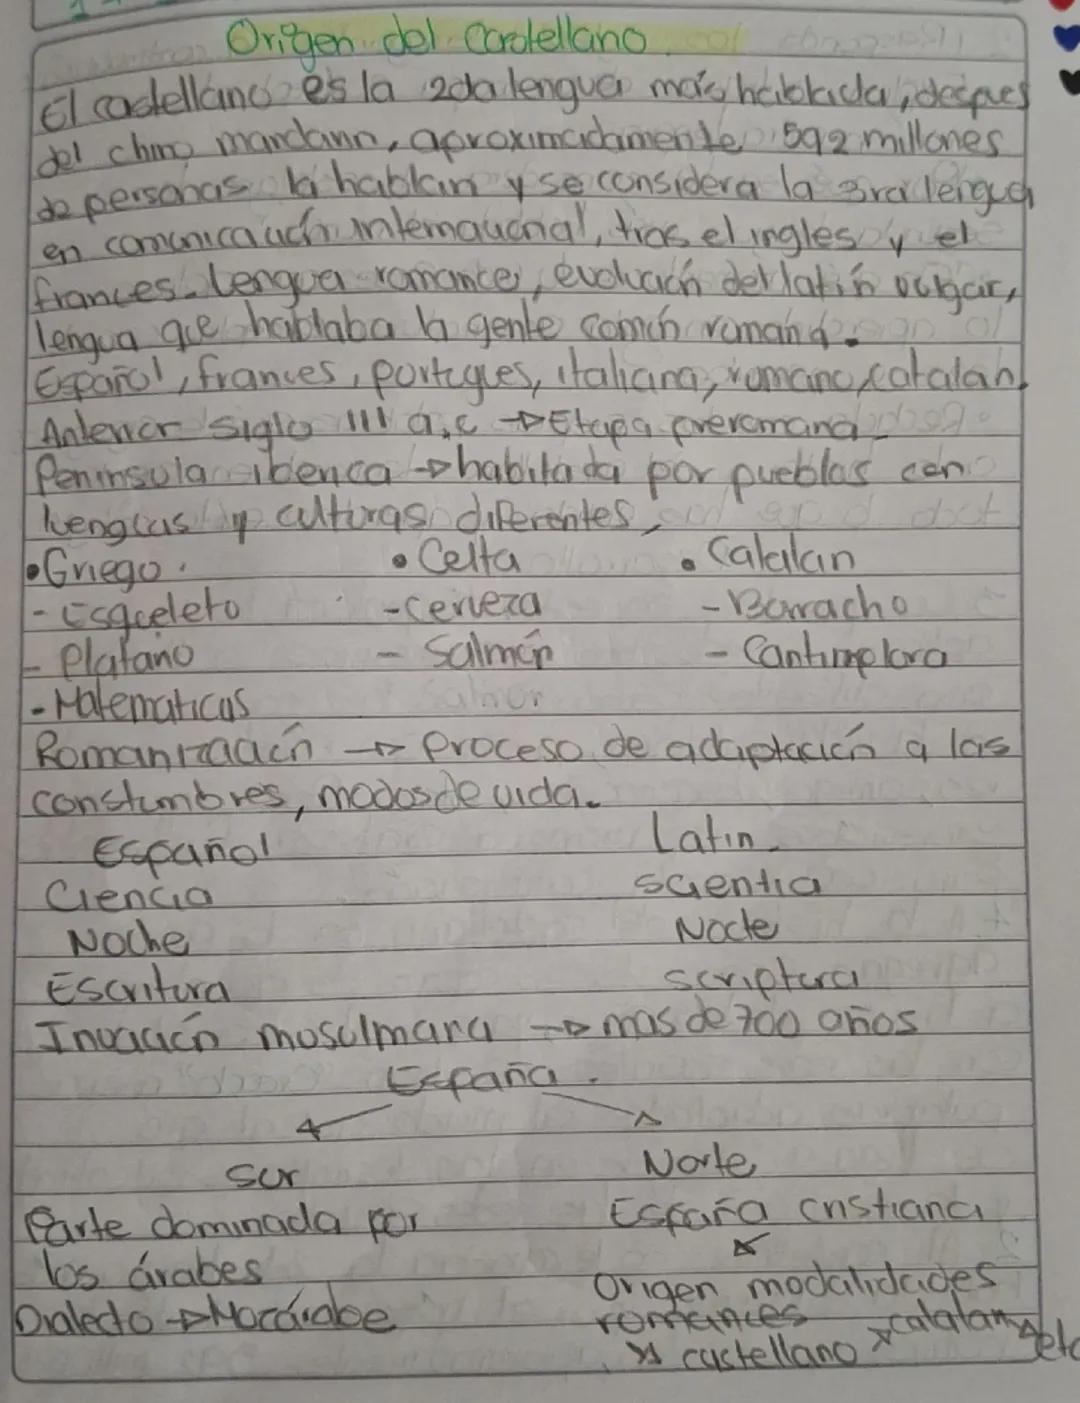 Origen del Castellano
El castellano es la 2da lengua más hablada, despues
del chino mandarin, aproximadamente 592 millones
de personas la hablan y se considera la 3ra lengua
en comunicación internacional, tras el ingles y el
frances. Lengua romance, evolución del latín vulgar,
lengua que hablaba la gente común romana.
Español, frances, portugues, italiana, rumano, catalan.
Anterior siglo III a.c → Etapa preromana
Peninsula iberica → habitada por pueblos con
lenguas y culturas diferentes.
• Griego. • Celta • Catalan
- Esqueleto - Cerveza - Borracho
- Platano - Salmón - Cantimplora
- Matematicas
Romanización → Proceso de adaptación a las
constumbres, modos de vida.
Español Latin
Ciencia scientia
Noche Nocte
Escritura scriptura
Invación musulmana → mas de 700 años
España.
Sur Norte
Parte dominada por España cristiana
los árabes
Origen modalidades
Dialecto → Mozárabe romances
castellano catalan etc